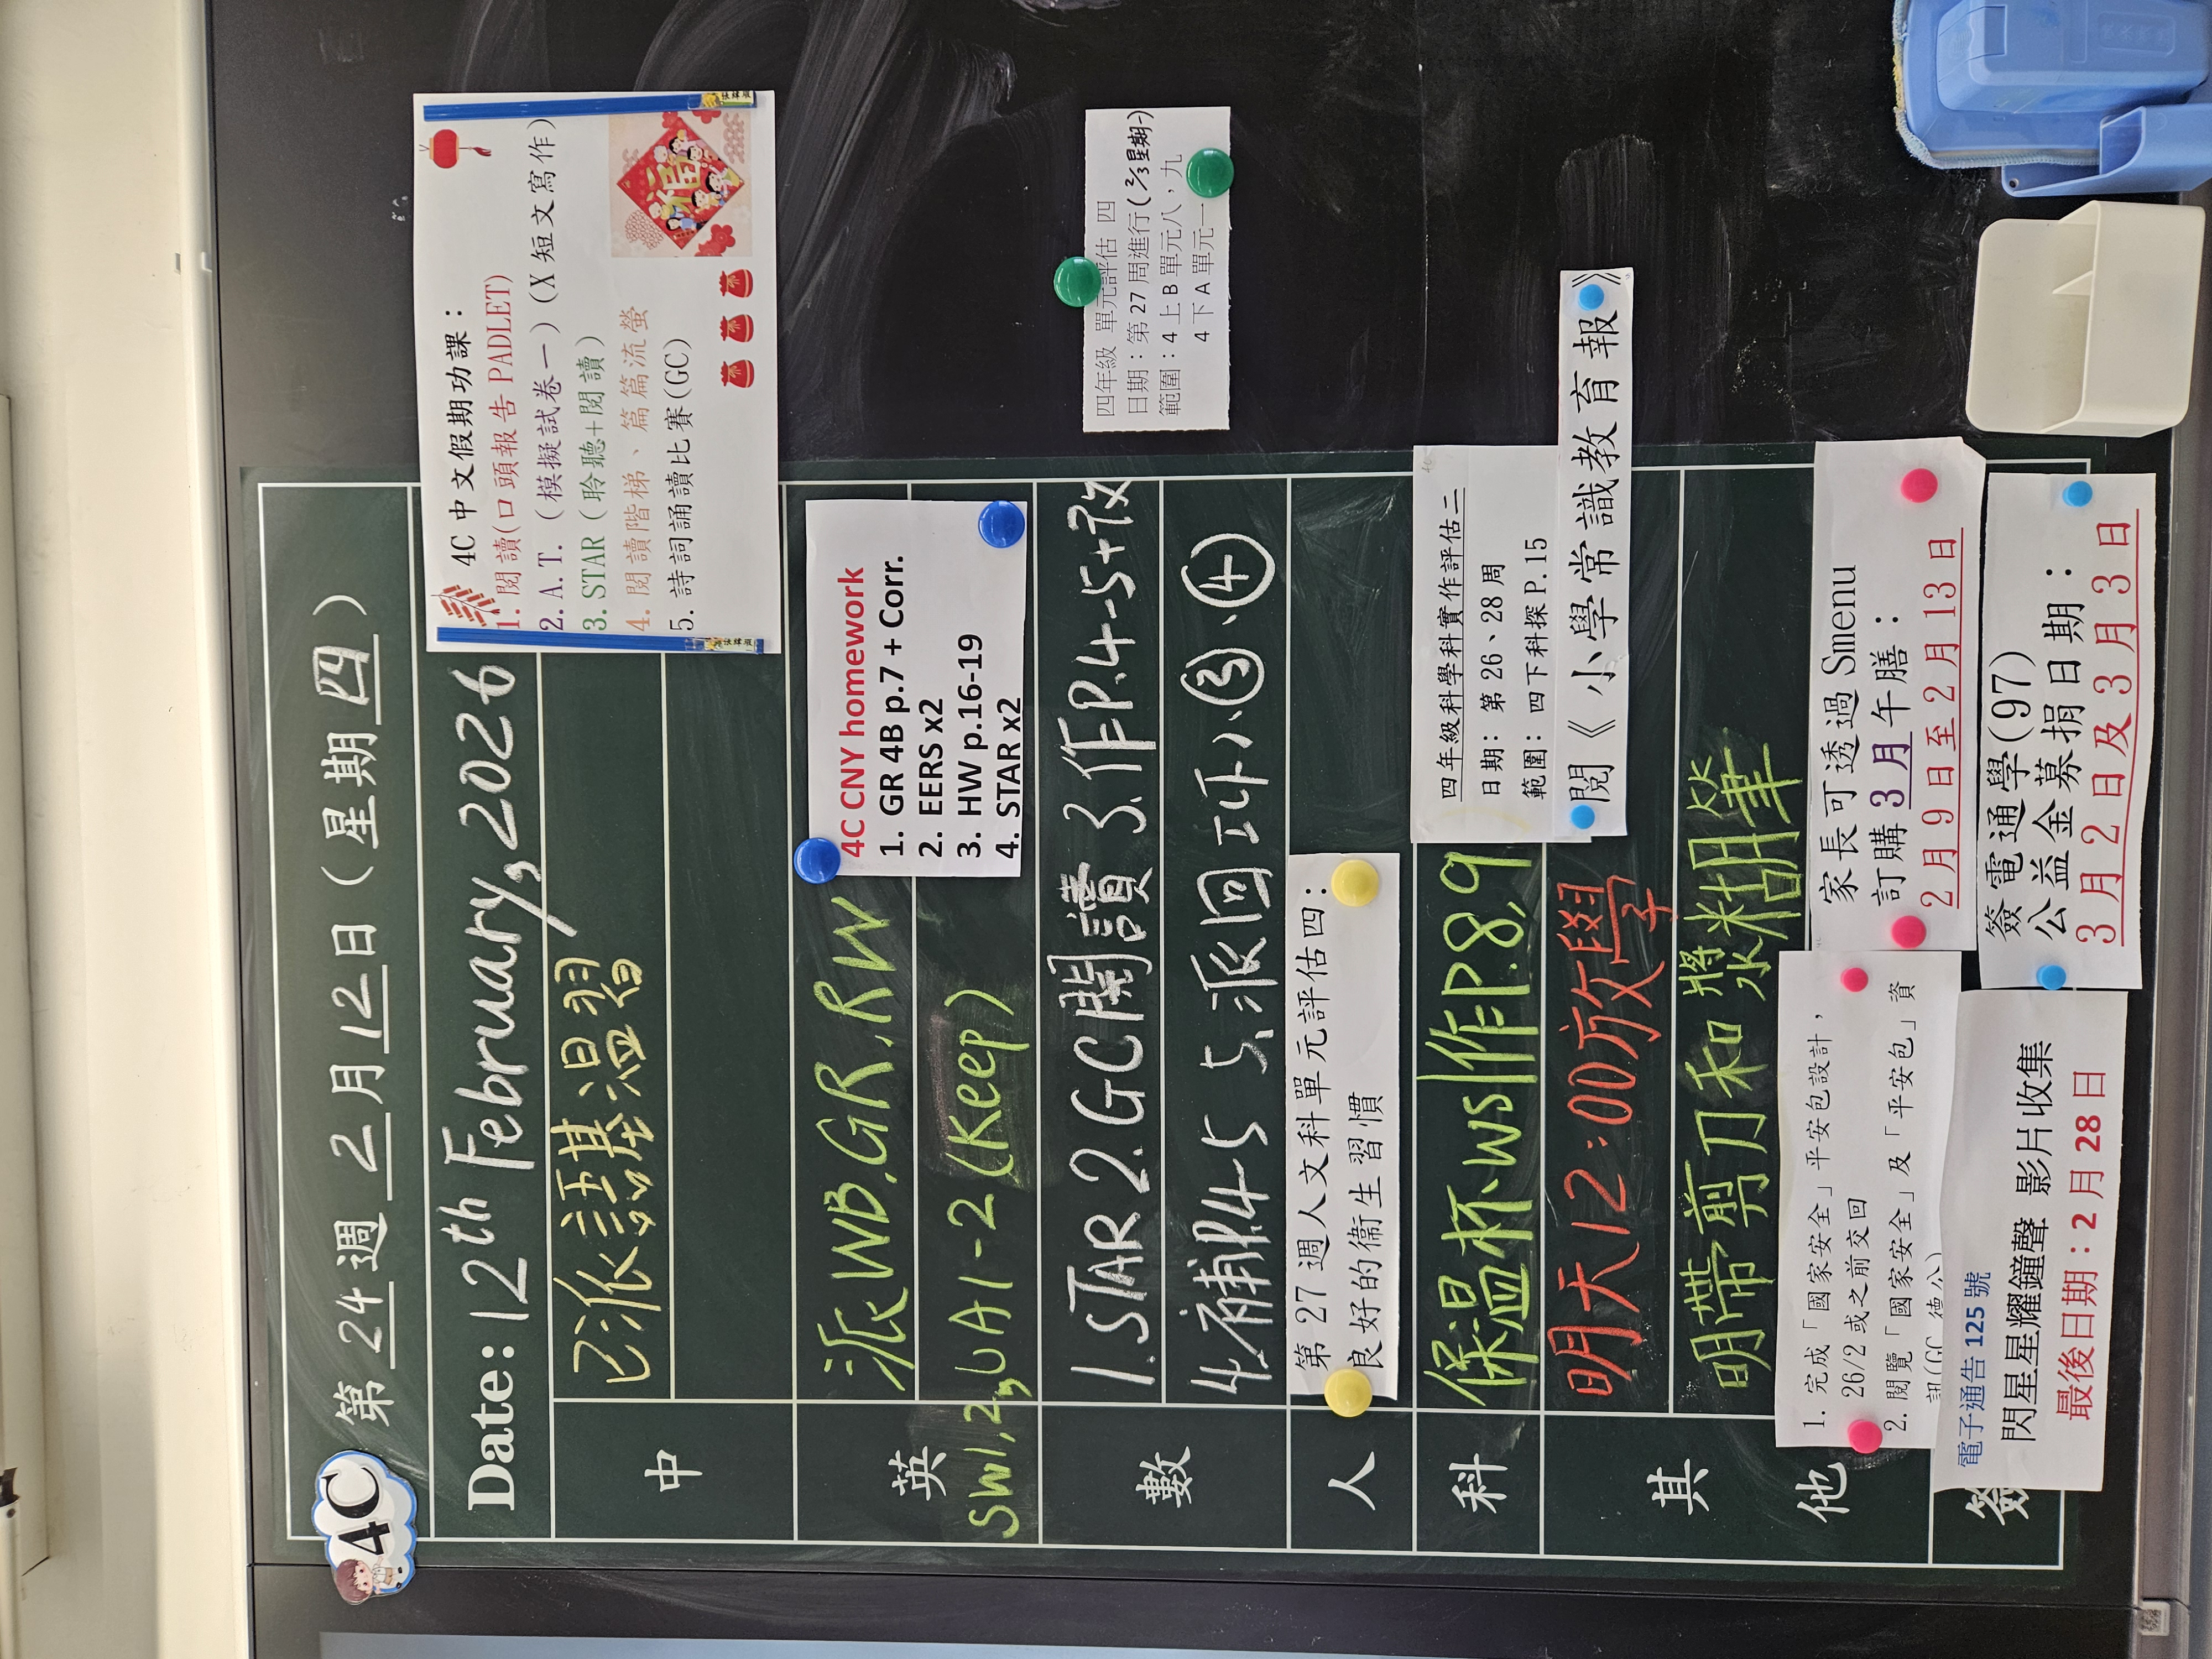 4C
第 24 週 2 月 12 日（星期 四）
Date: 12th February, 2026
4C 中文假期功課：
1. 閱讀(口頭報告 PADLET)
2. A.T.（模擬試卷一）(X 短文寫作)
3. STAR（聆聽+閱讀）
4. 閱讀階梯、篇篇流螢
5. 詩詞誦讀比賽(GC)
福
中
已派謀溫習
英
派WB, GR, RW
SW1,2, UA1-2 (Keep)
4C CNY homework
1. GR 4B p.7 + Corr.
2. EERS x2
3. HW p.16-19
4. STAR x2
數
1.STAR 2.GC閱讀 3.作P.4-5+改
4.補P.4-5 5.派回工作小③、④
四年級 單元評估 四
日期：第 27 周進行(2/3 星期一)
範圍：4 上 B 單元八，九
4 下 A 單元一
人
第 27 週人文科單元評估四：
良好的衞生習慣
科
保溫杯、ws作P.8,9
四年級科學科實作評估二
日期: 第 26、28 周
範圍: 四下科探 P.15
閱《小學常識教育報》
其他
明天12:00放學
明帶剪刀和漿糊筆
1. 完成「國家安全」平安包設計，
26/2 或之前交回
2. 閱覽「國家安全」及「平安包」資
訊(GC
家長可透過 Smenu
訂購 3 月午膳：
2 月 9 日至 2 月 13 日
簽
電子通告 125 號
閃星星耀鐘聲 影片收集
最後日期：2 月 28 日
簽電通學(97)
公益金募捐日期：
3 月 2 日及 3 月 3 日